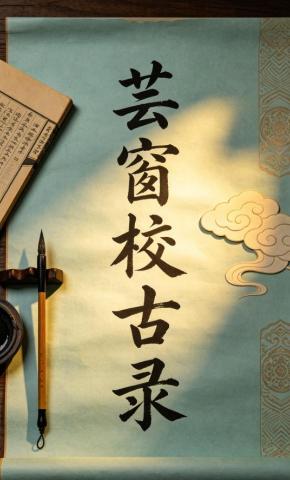 芸窗校古录